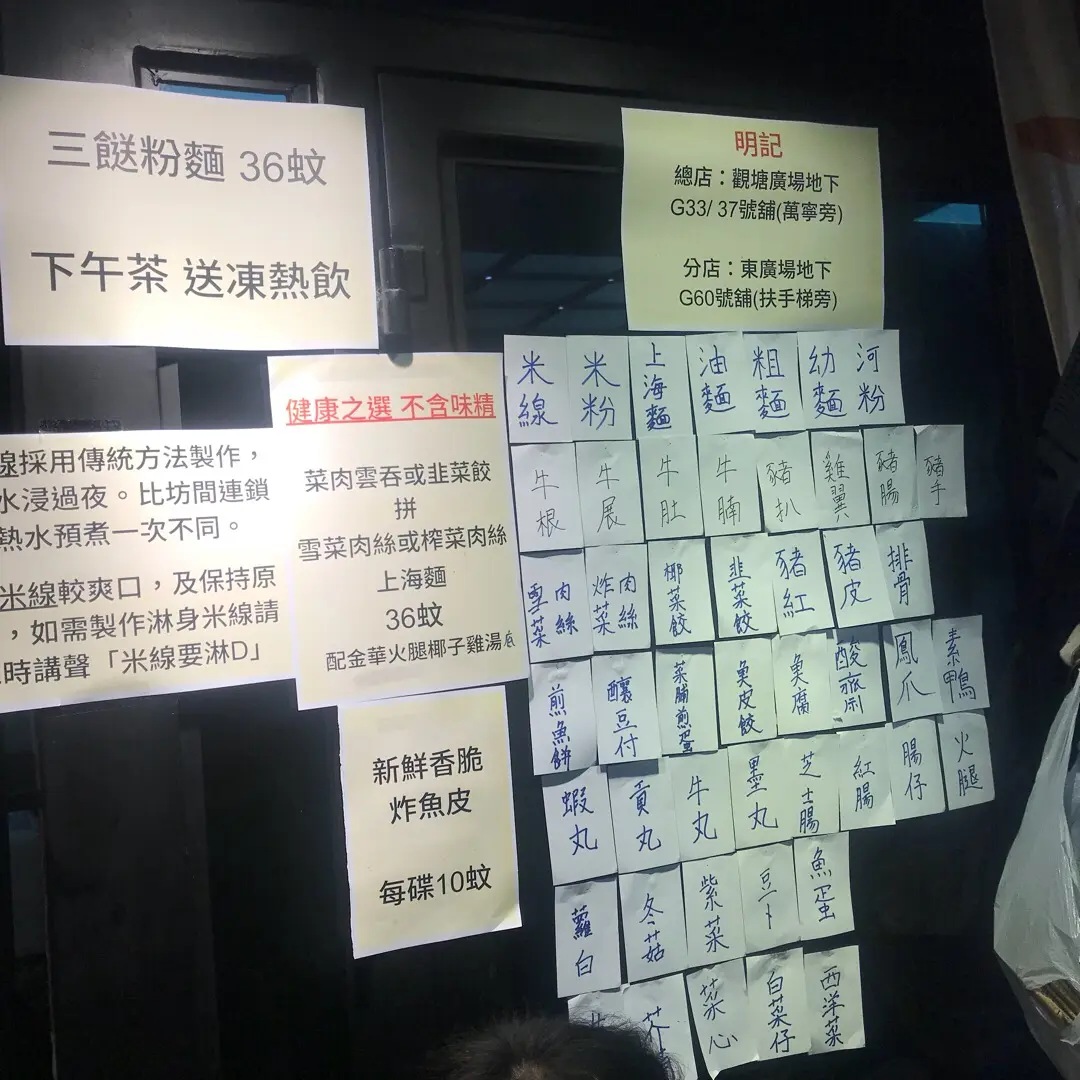 三餸粉麵 36蚊
下午茶 送凍熱飲
明記
總店：觀塘廣場地下
G33/ 37號舖(萬寧旁)
分店：東廣場地下
G60號舖(扶手梯旁)
線採用傳統方法製作，
水浸過夜。比坊間連鎖
熱水預煮一次不同。
米線較爽口，及保持原
，如需製作淋身米線請
時講聲「米線要淋D」
健康之選 不含味精
菜肉雲吞或韭菜餃
拼
雪菜肉絲或榨菜肉絲
上海麵
36蚊
配金華火腿椰子雞湯底
新鮮香脆
炸魚皮
每碟10蚊
米線
米粉
上海麵
油麵
粗麵
幼麵
河粉
牛根
牛展
牛肚
牛腩
豬扒
雞翼
豬腸
豬手
雪菜肉絲
炸菜肉絲
椰菜餃
韭菜餃
豬紅
豬皮
排骨
煎魚餅
釀豆付
菜脯煎蛋
魚皮餃
魚腐
酸齋
鳳爪
素鴨
蝦丸
貢丸
牛丸
墨丸
芝士腸
紅腸
腸仔
火腿
蘿白
冬菇
紫菜
豆卜
魚蛋
菜心
白菜仔
西洋菜